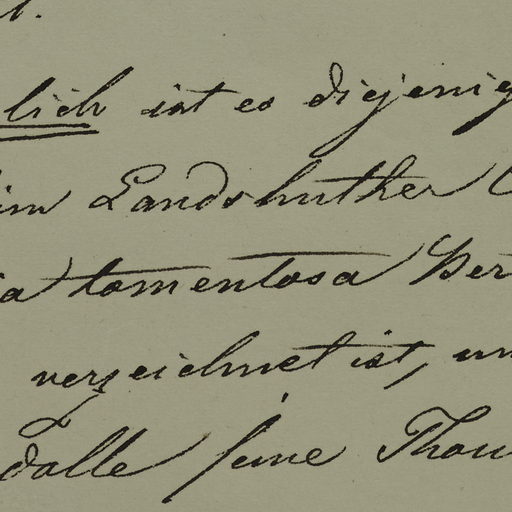 t.
lich ist es diejenig
im Landshuther
ia tomentosa Ber
verzeichnet ist, un
dalle fune Thou